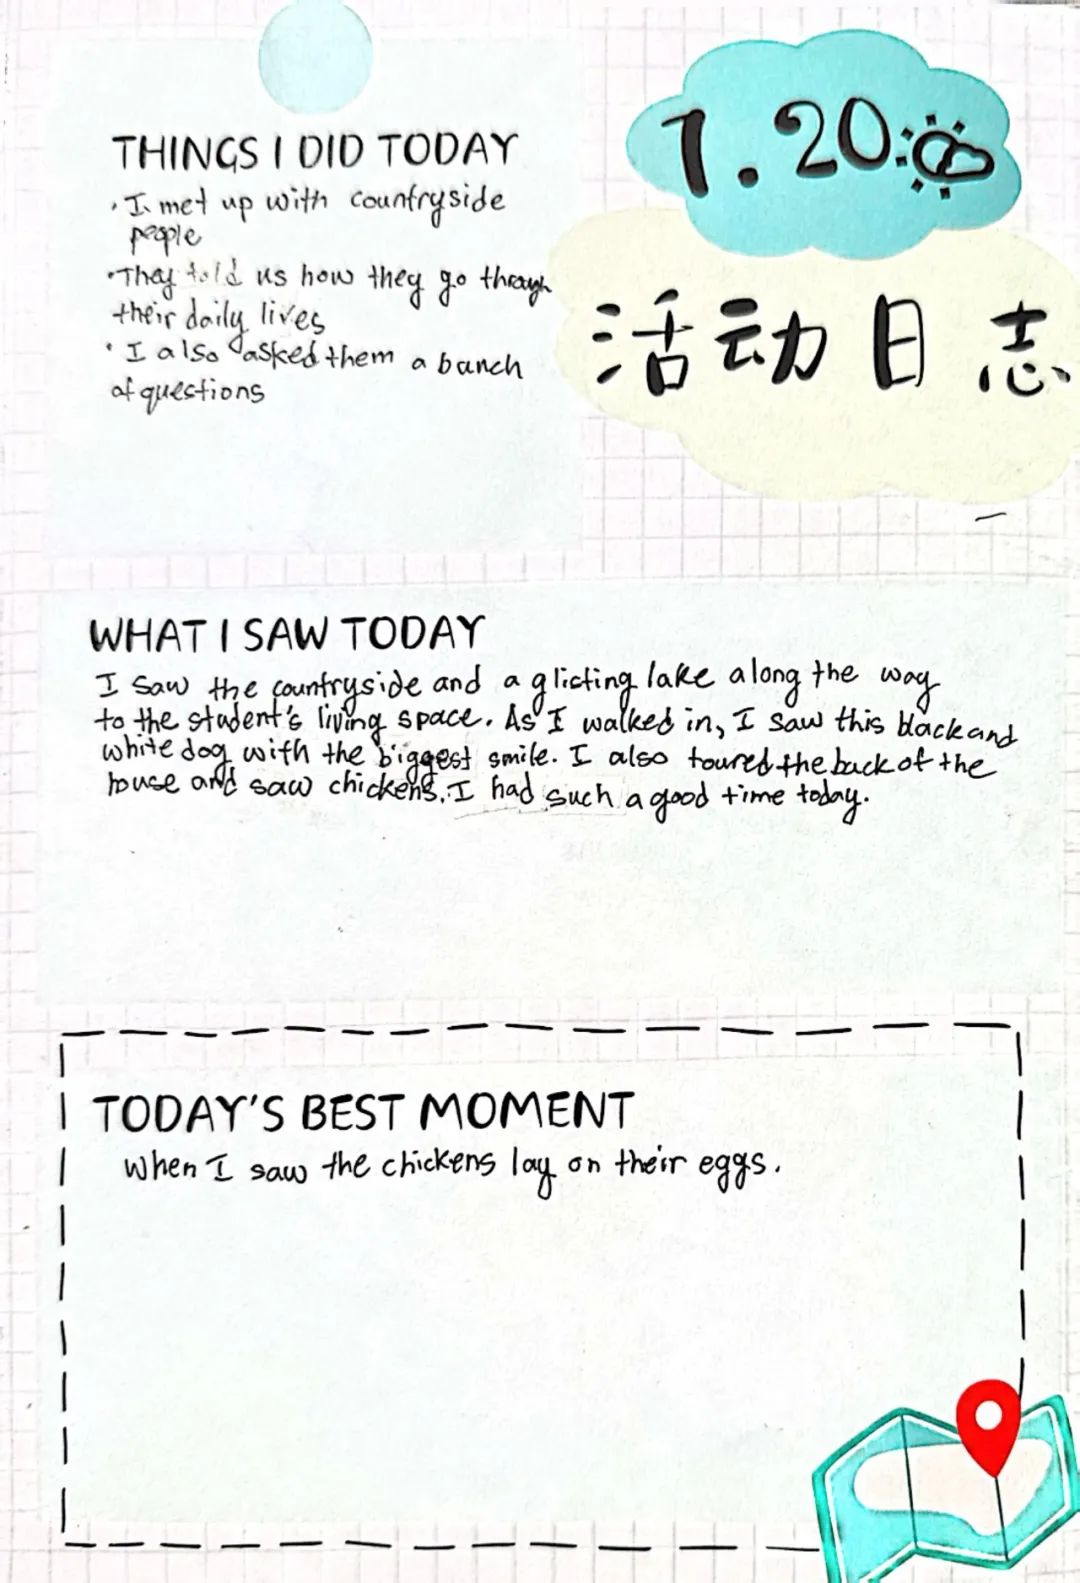 THINGS I DID TODAY
· I met up with countryside
people
· They told us how they go through
their daily lives
· I also asked them a bunch
of questions
1.20
活动日志
WHAT I SAW TODAY
I saw the countryside and a glicting lake along the way
to the student's living space. As I walked in, I saw this black and
white dog with the biggest smile. I also toured the back of the
house and saw chickens. I had such a good time today.
TODAY'S BEST MOMENT
When I saw the chickens lay on their eggs.